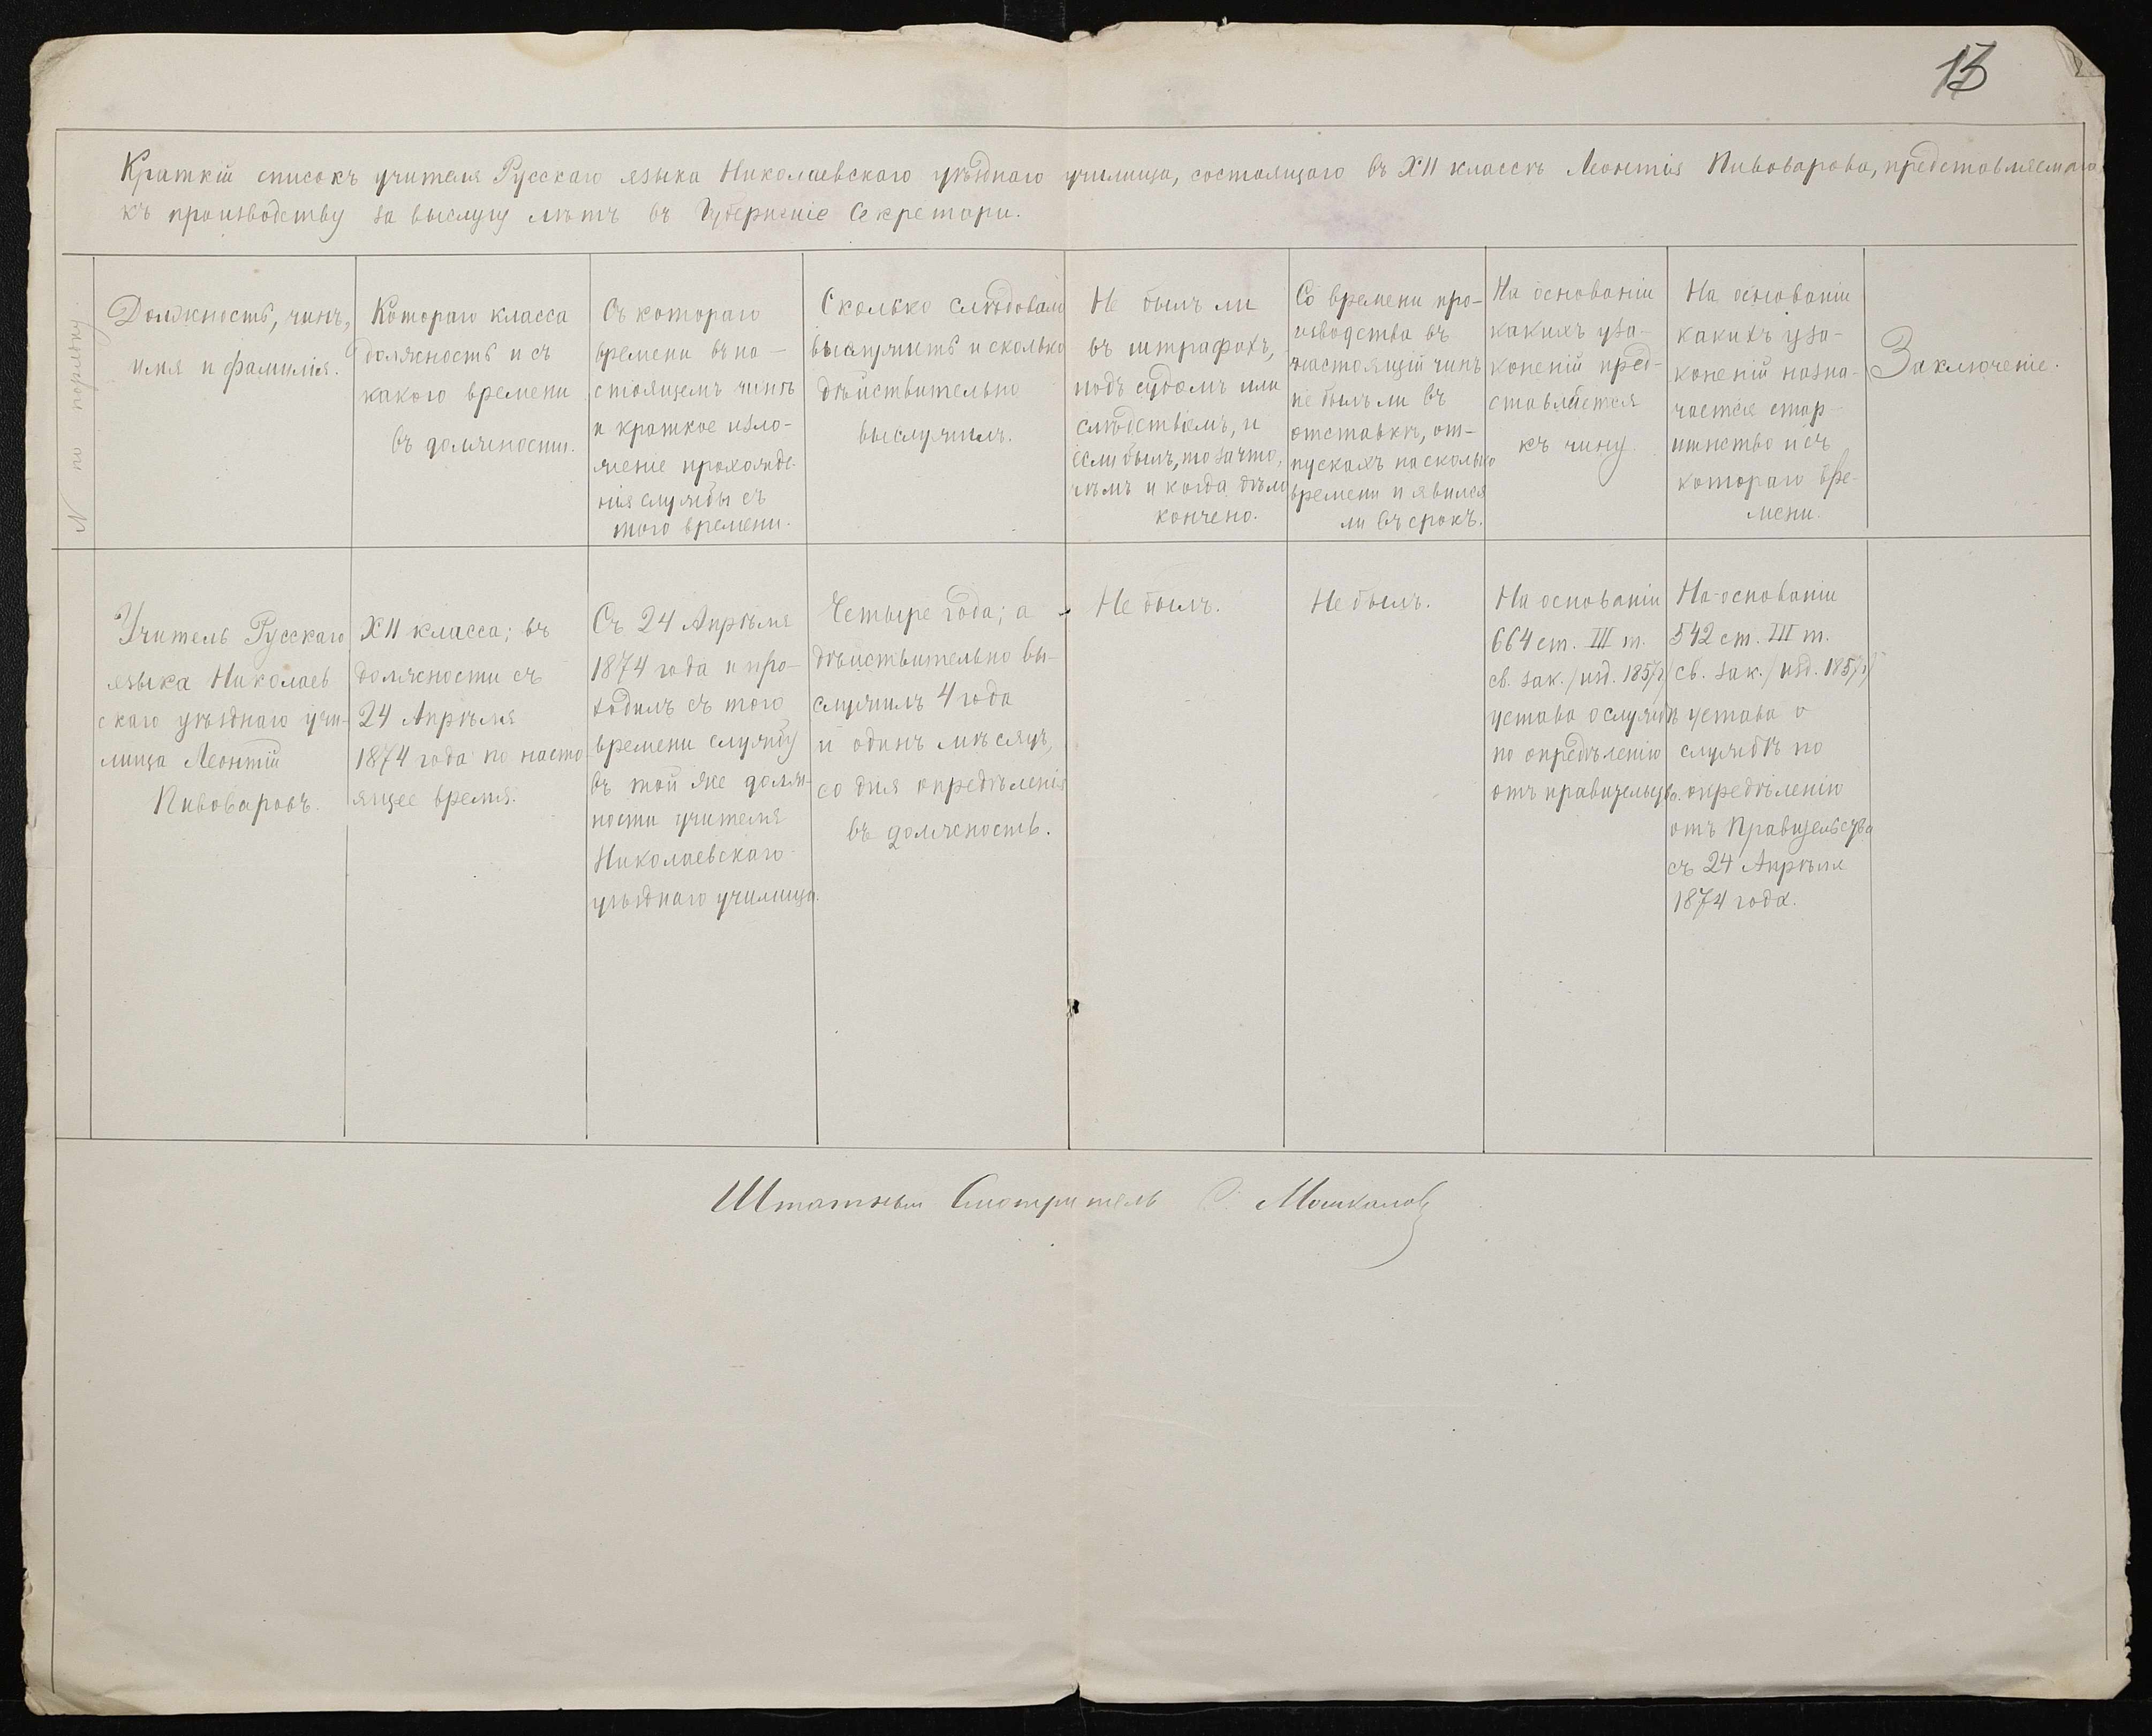 13
Краткій списокъ учителя Русскаго языка Николаевскаго уѣзднаго училища, состоящаго въ XII классѣ Леонтія Пивоварова, представляемаго
къ производству за выслугу лѣтъ въ Губернскіе Секретари.
N по порядку
Должность, чинъ,
имя и фамилія.
Котораго класса
должность и съ
какого времени
въ должности.
Съ котораго
времени въ на-
стоящемъ чинѣ
и краткое изло-
женіе прохожде-
нія службы съ
того времени.
Сколько слѣдовало
выслужить и сколько
дѣйствительно
выслужилъ.
Не былъ ли
въ штрафахъ,
подъ судомъ или
слѣдствіемъ, и
если былъ, то за что,
чѣмъ и когда дѣло
кончено.
Со времени про-
изводства въ
настоящій чинъ
не былъ ли въ
отставкѣ, от-
пускахъ на сколько
времени и явился
ли въ срокъ.
На основаніи
какихъ уза-
коненій пред-
ставляется
къ чину
На основаніи
какихъ уза-
коненій назна-
чается стар-
шинство и съ
котораго вре-
мени.
Заключеніе.
Учитель Русскаго
языка Николаев
скаго уѣзднаго учи-
лища Леонтій
Пивоваровъ.
XII класса; въ
должности съ
24 Апрѣля
1874 года по насто
ящее время.
Съ 24 Апрѣля
1874 года и про-
ходилъ съ того
времени службу
въ той же долж-
ности учителя
Николаевскаго
уѣзднаго училища.
Четыре года; а
дѣйствительно вы-
служилъ 4 года
и одинъ мѣсяцъ,
со дня опредѣленія
въ должность.
Не былъ.
Не былъ.
На основаніи
664 ст. III т.
св. зак. /изд. 1857 г/
устава о службѣ
по опредѣленію
отъ правительства.
На основаніи
542 ст. III т.
св. зак. /изд. 1857 г/
устава о
службѣ по
опредѣленію
отъ Правительства
съ 24 Апрѣля
1874 года.
Штатный Смотритель Машкаловъ